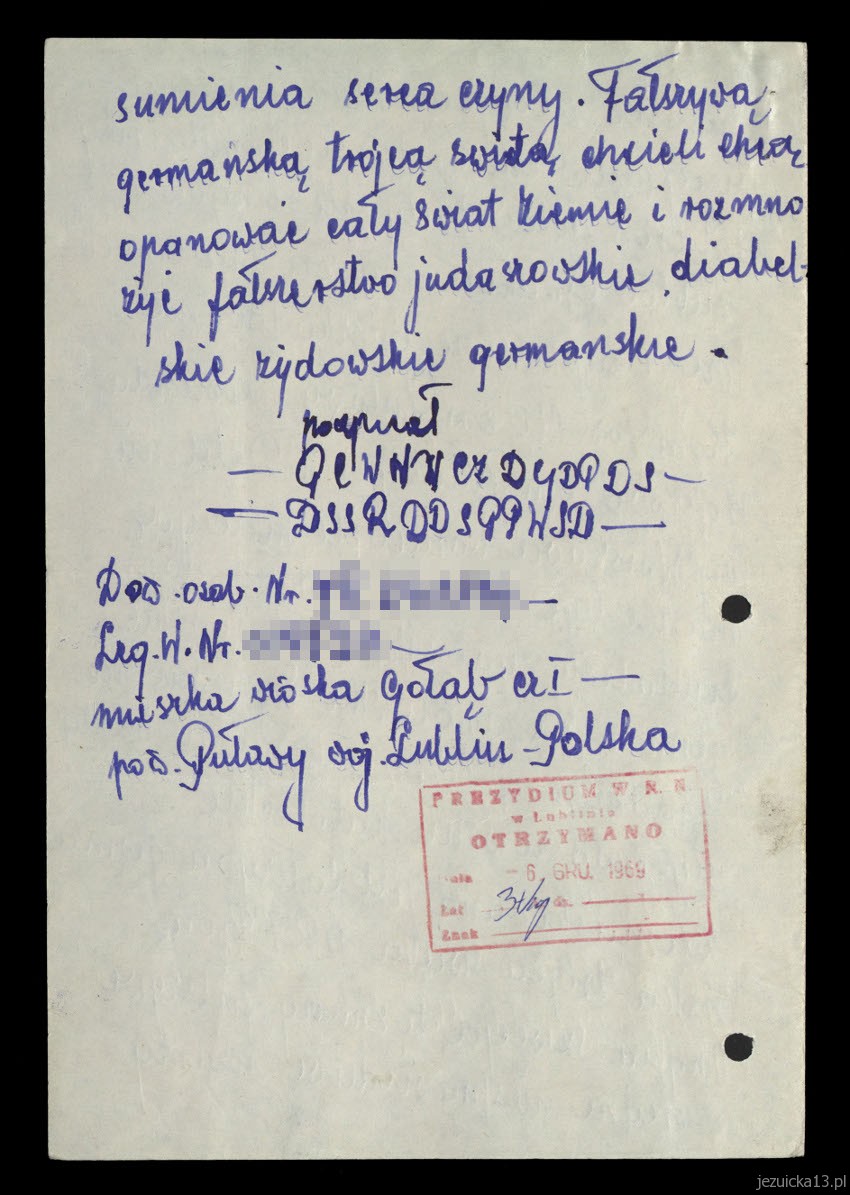 sumienia serca czyny. Fałszywą
germańską trójcą świętą chcieli chcą
opanować cały świat ziemie i rozmno
żyć fałszerstwo judaszowskie diabel-
skie żydowskie germanskie.
— QCWNWCZDYDPDS —
— DSSRDDSPPWSD —
Dow. osob. Nr.
Leg. W. Nr.
mieszka wioska Gołąb cz I —
pow. Puławy woj. Lublin - Polska
PREZYDIUM W. R. N.
w Lublinie
OTRZYMANO
- 6. GRU. 1969
Zał
Znak
jezuicka13.pl